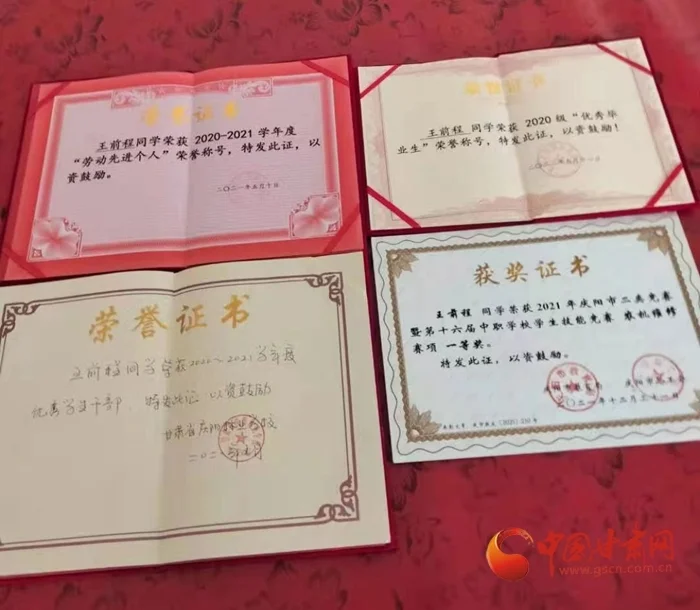 荣誉证书
王前程同学荣获 2020-2021 学年度
“劳动先进个人”荣誉称号，特发此证，以
资鼓励。
二〇二一年五月十日
荣誉证书
王前程 同学荣获 2020级“优秀毕
业生”荣誉称号，特发此证，以资鼓励！
荣誉证书
王前程同学荣获2020~2021学年度
优秀学生干部，特发此证 以资鼓励
甘肃省庆阳林业学校
获奖证书
王前程 同学荣获2021年庆阳市二类竞赛
暨第十六届中职学校学生技能竞赛 农机维修
赛项 一等奖。
特发此证，以资鼓励。
庆阳市教育局 庆阳市总工会
中国甘肃网
www.gscn.com.cn